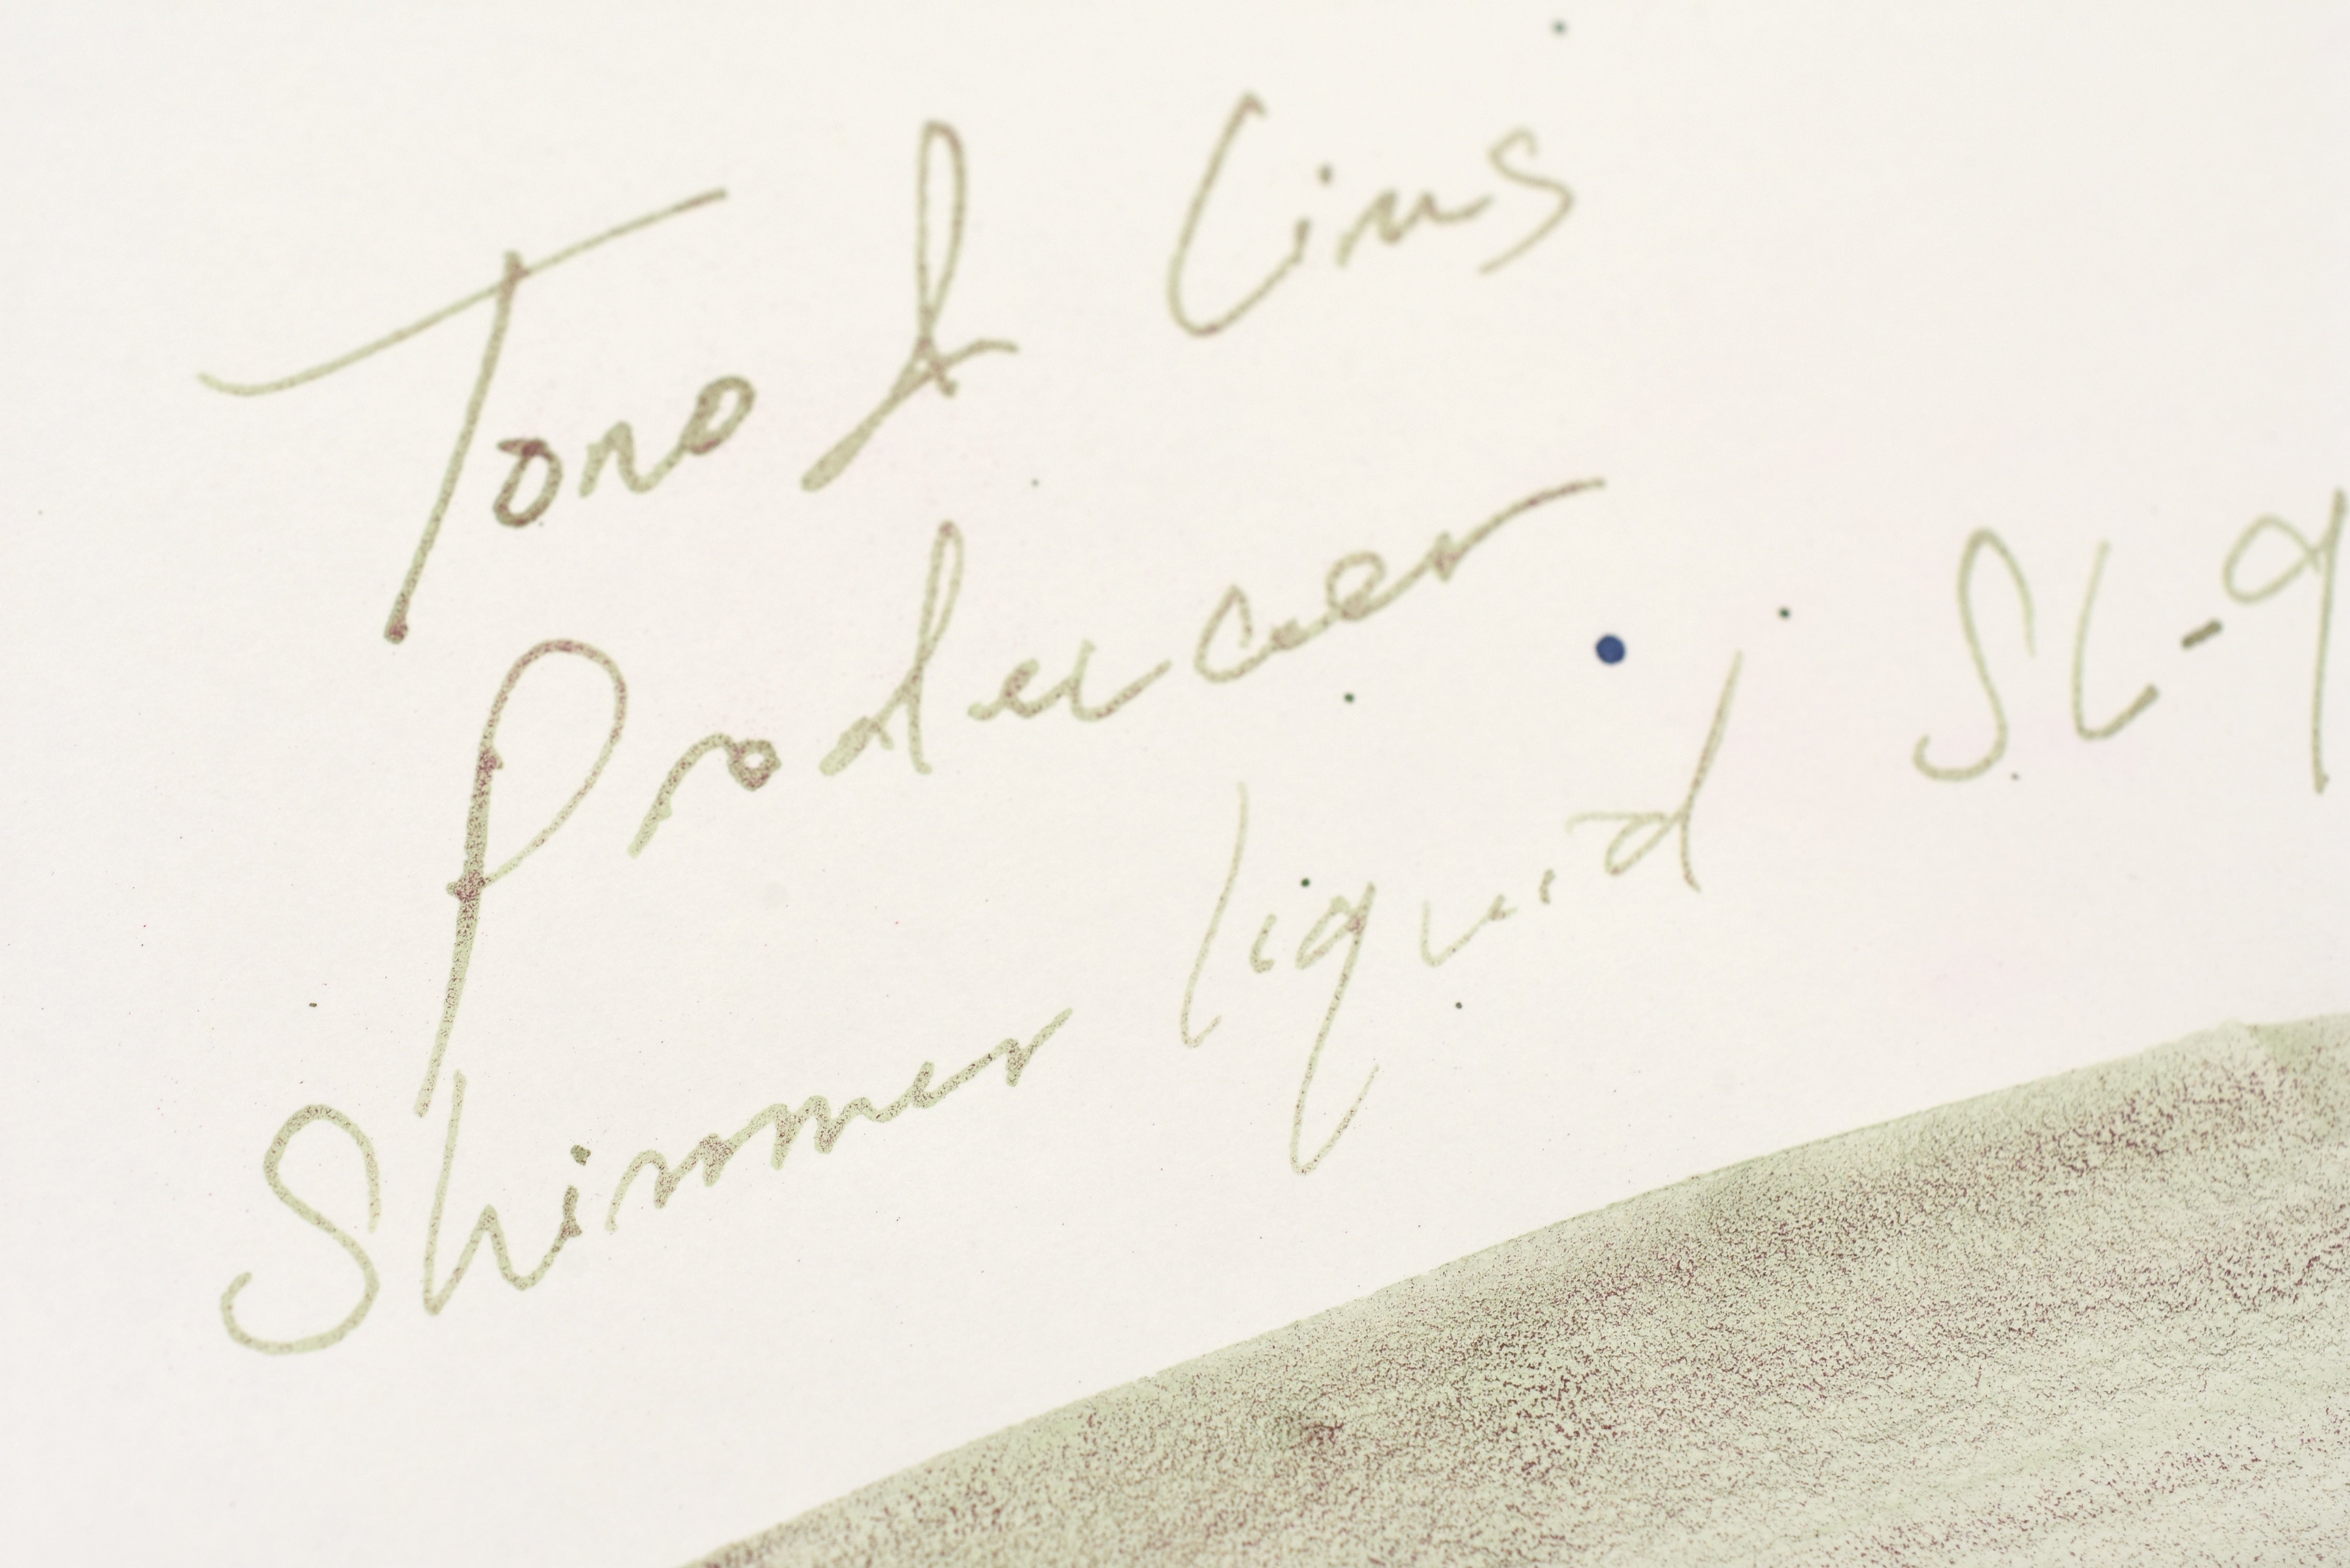 Tono & Lims
Producer
Shimmer liquid SL-9